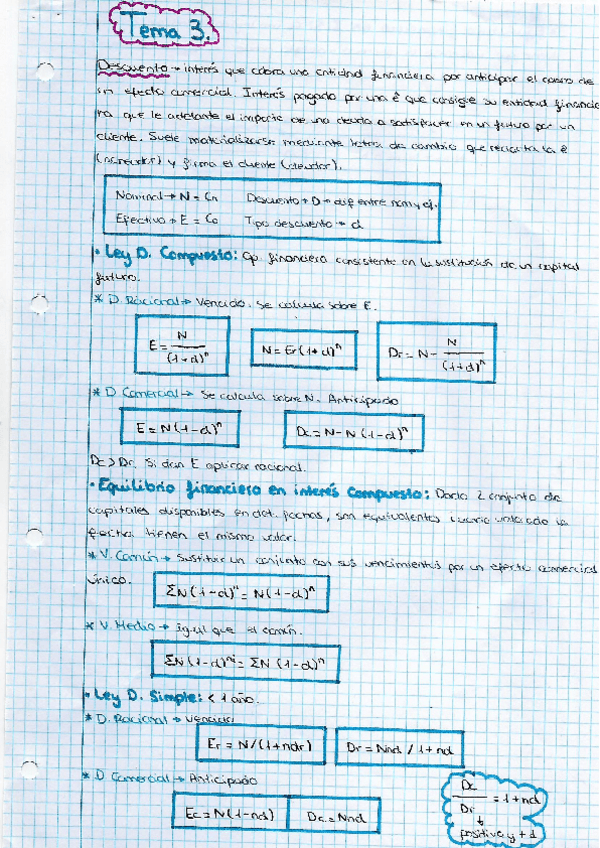 Tema 3.
Descuento → interés que cobra una entidad financiera por anticipar el cobro de
un efecto comercial. Interés pagado por una ê que consigue su entidad financie
ra que le adelante el importe de una deuda a satisfacer en un futuro por un
cliente. Suele materializarse mediante letras de cambio que la ê
(acreedor) y firma el cliente (deudor).
Nominal → N = Cn Descuento → D → dif entre nom y ef.
Efectivo → E = C0 Tipo descuento → d
• Ley D. Compuesto: Op. financiera consistente en la sustitución de un capital
futuro.
* D. Racional → Vencido. Se calcula sobre E.
E = N / (1+d)^n N = Er (1+d)^n Dr = N - N / (1+d)^n
* D. Comercial → Se calcula sobre N. Anticipado
E = N(1-d)^n Dc = N - N (1-d)^n
Dc > Dr. Si dan E aplicar racional.
• Equilibrio financiero en interés Compuesto: Dado 2 conjunto de
capitales disponibles en det. fechas, son equivalentes cuando la
fecha tienen el mismo valor.
* V. Común → Sustituir un conjunto con sus vencimientos por un efecto comercial
único.
ΣN(1-d)^n = N(1-d)^n
* V. Medio → igual que el común.
ΣN(1-d)^ni = ΣN(1-d)^n
• Ley D. Simple: < 1 año.
* D. Racional → Vencido
Er = N/(1+ndr) Dr = Nnd / 1+nd
* D. Comercial → Anticipado
Ec = N(1-nd) Dc = Nnd
Dc / Dr = 1+nd
↓
positivo y + 1